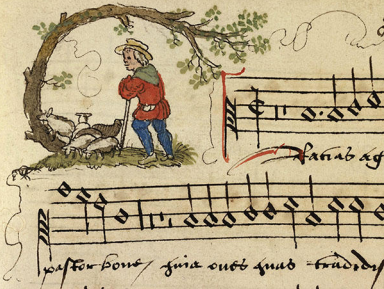 GRatias ag
pastor bone / quia oves quas tradidis